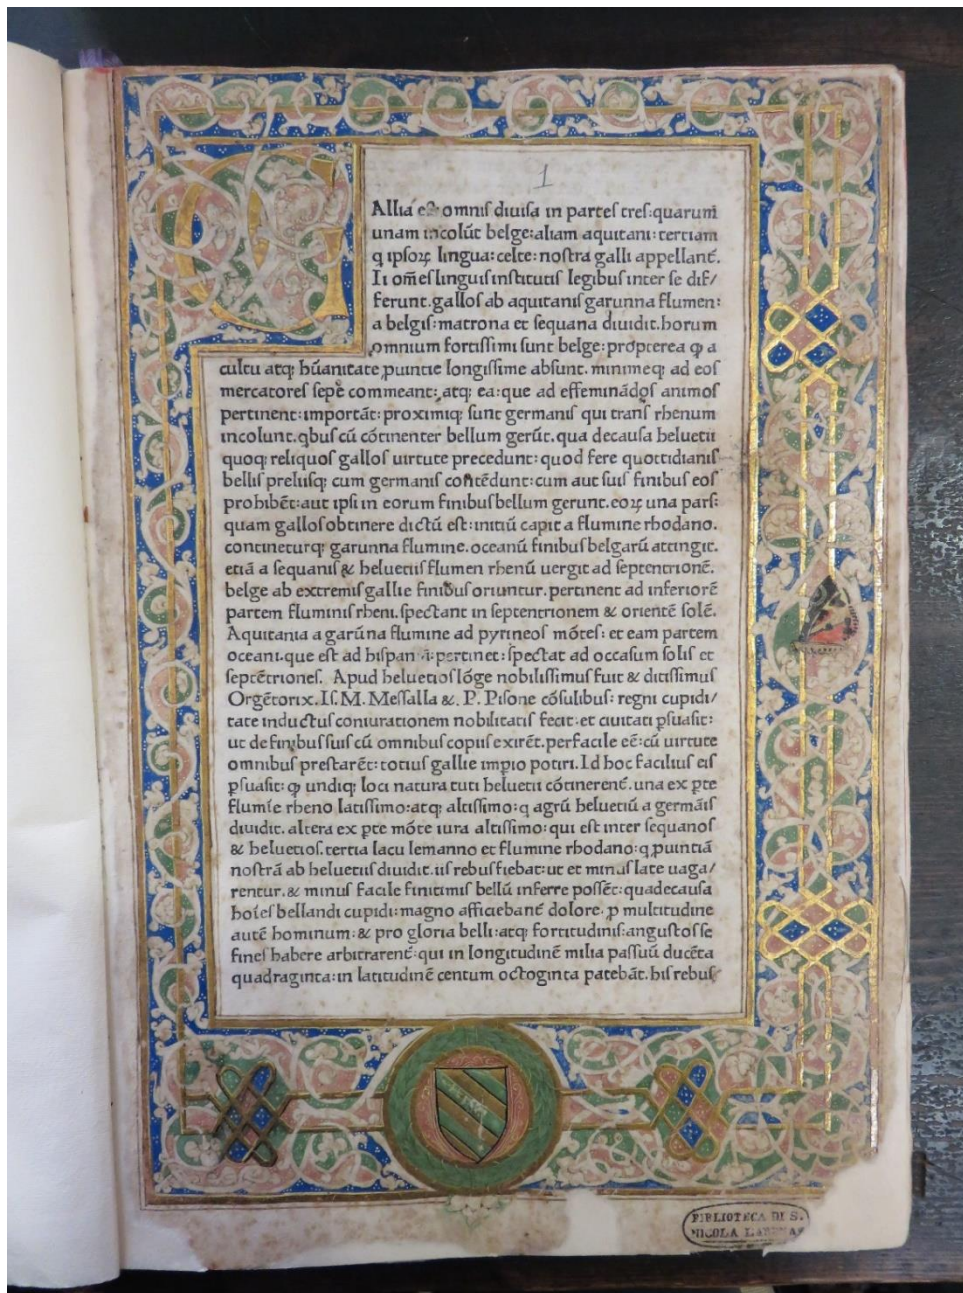 1
G
Allia eſt omniſ diuiſa in parteſ treſ:quarum̄
unam incolūt belge:aliam aquitani:tertiam
q ipſoꝝ lingua:celte:noſtra galli appellant̄.
Ii om̄eſ linguiſ inſtitutiſ legibuſ inter ſe dif/
ferunt.galloſ ab aquitaniſ garunna flumen:
a belgiſ:matrona et ſequana diuidit.horum
omnium fortiſſimi ſunt belge:propterea ꝙ a
cultu atqꝫ hūanitate ꝓuintie longiſſime abſunt.minimeqꝫ ad eoſ
mercatoreſ ſepe commeant:atqꝫ ea:que ad effeminādoſ animoſ
pertinent:importāt:proximiqꝫ ſunt germaniſ qui tranſ rhenum
incolunt.qbuſ cū cōtinenter bellum gerūt.qua decauſa heluetii
quoqꝫ reliquoſ galloſ uirtute precedunt:quod fere quottidianiſ
belliſ preliiſqꝫ cum germaniſ contēdunt:cum aut ſuiſ finibuſ eoſ
prohibēt:aut ipſi in eorum finibuſ bellum gerunt.eoꝝ una parſ:
quam galloſ obtinere dictū eſt:initiū capit a flumine rhodano.
contineturqꝫ garunna flumine.oceanū finibuſ belgarū attingit.
etiā a ſequaniſ & heluetiiſ flumen rhenū uergit ad ſeptentrionē.
belge ab extremiſ gallie finibuſ oriuntur.pertinent ad inferiorē
partem fluminiſ rheni.ſpectant in ſeptentrionem & orientē ſolē.
Aquitania a garūna flumine ad pyrineoſ mōteſ:et eam partem
oceani.que eſt ad hiſpaniā:pertinet:ſpectat ad occaſum ſoliſ et
ſeptētrioneſ. Apud heluetioſ lōge nobiliſſimuſ fuit & ditiſſimuſ
Orgētorix.Iſ.M.Meſſalla &.P.Piſone cōſulibuſ:regni cupidi/
tate inductuſ coniurationem nobilitatiſ fecit:et ciuitati ꝑſuaſit:
ut de finibuſ ſuiſ cū omnibuſ copiiſ exirēt.perfacile eē:cū uirtute
omnibuſ preſtarēt:totiuſ gallie imꝑio potiri.Id hoc faciliuſ eiſ
ꝑſuaſit:ꝙ undiqꝫ loci natura tuti heluetii cōtinerent̄.una ex ꝑte
flumīe rheno latiſſimo:atqꝫ altiſſimo:q agrū heluetiū a germāiſ
diuidit.altera ex ꝑte mōte iura altiſſimo:qui eſt inter ſequanoſ
& heluetioſ.tertia lacu lemanno et flumine rhodano:q ꝓuintiā
noſtrā ab heluetiiſ diuidit.iiſ rebuſ fiebat:ut et minuſ late uaga/
rentur.& minuſ facile finitimiſ bellū inferre poſſēt:quadecauſa
hoīeſ bellandi cupidi:magno afficiebant̄ dolore.ꝓ multitudine
autē hominum:& pro gloria belli:atqꝫ fortitudiniſ:anguſtoſ ſe
fineſ habere arbitrarent̄:qui in longitudinē milia paſſuū ducēta
quadraginta:in latitudinē centum octoginta patebāt.hiſ rebuſ
BIBLIOTECA DI S.
NICOLA L'ARENA